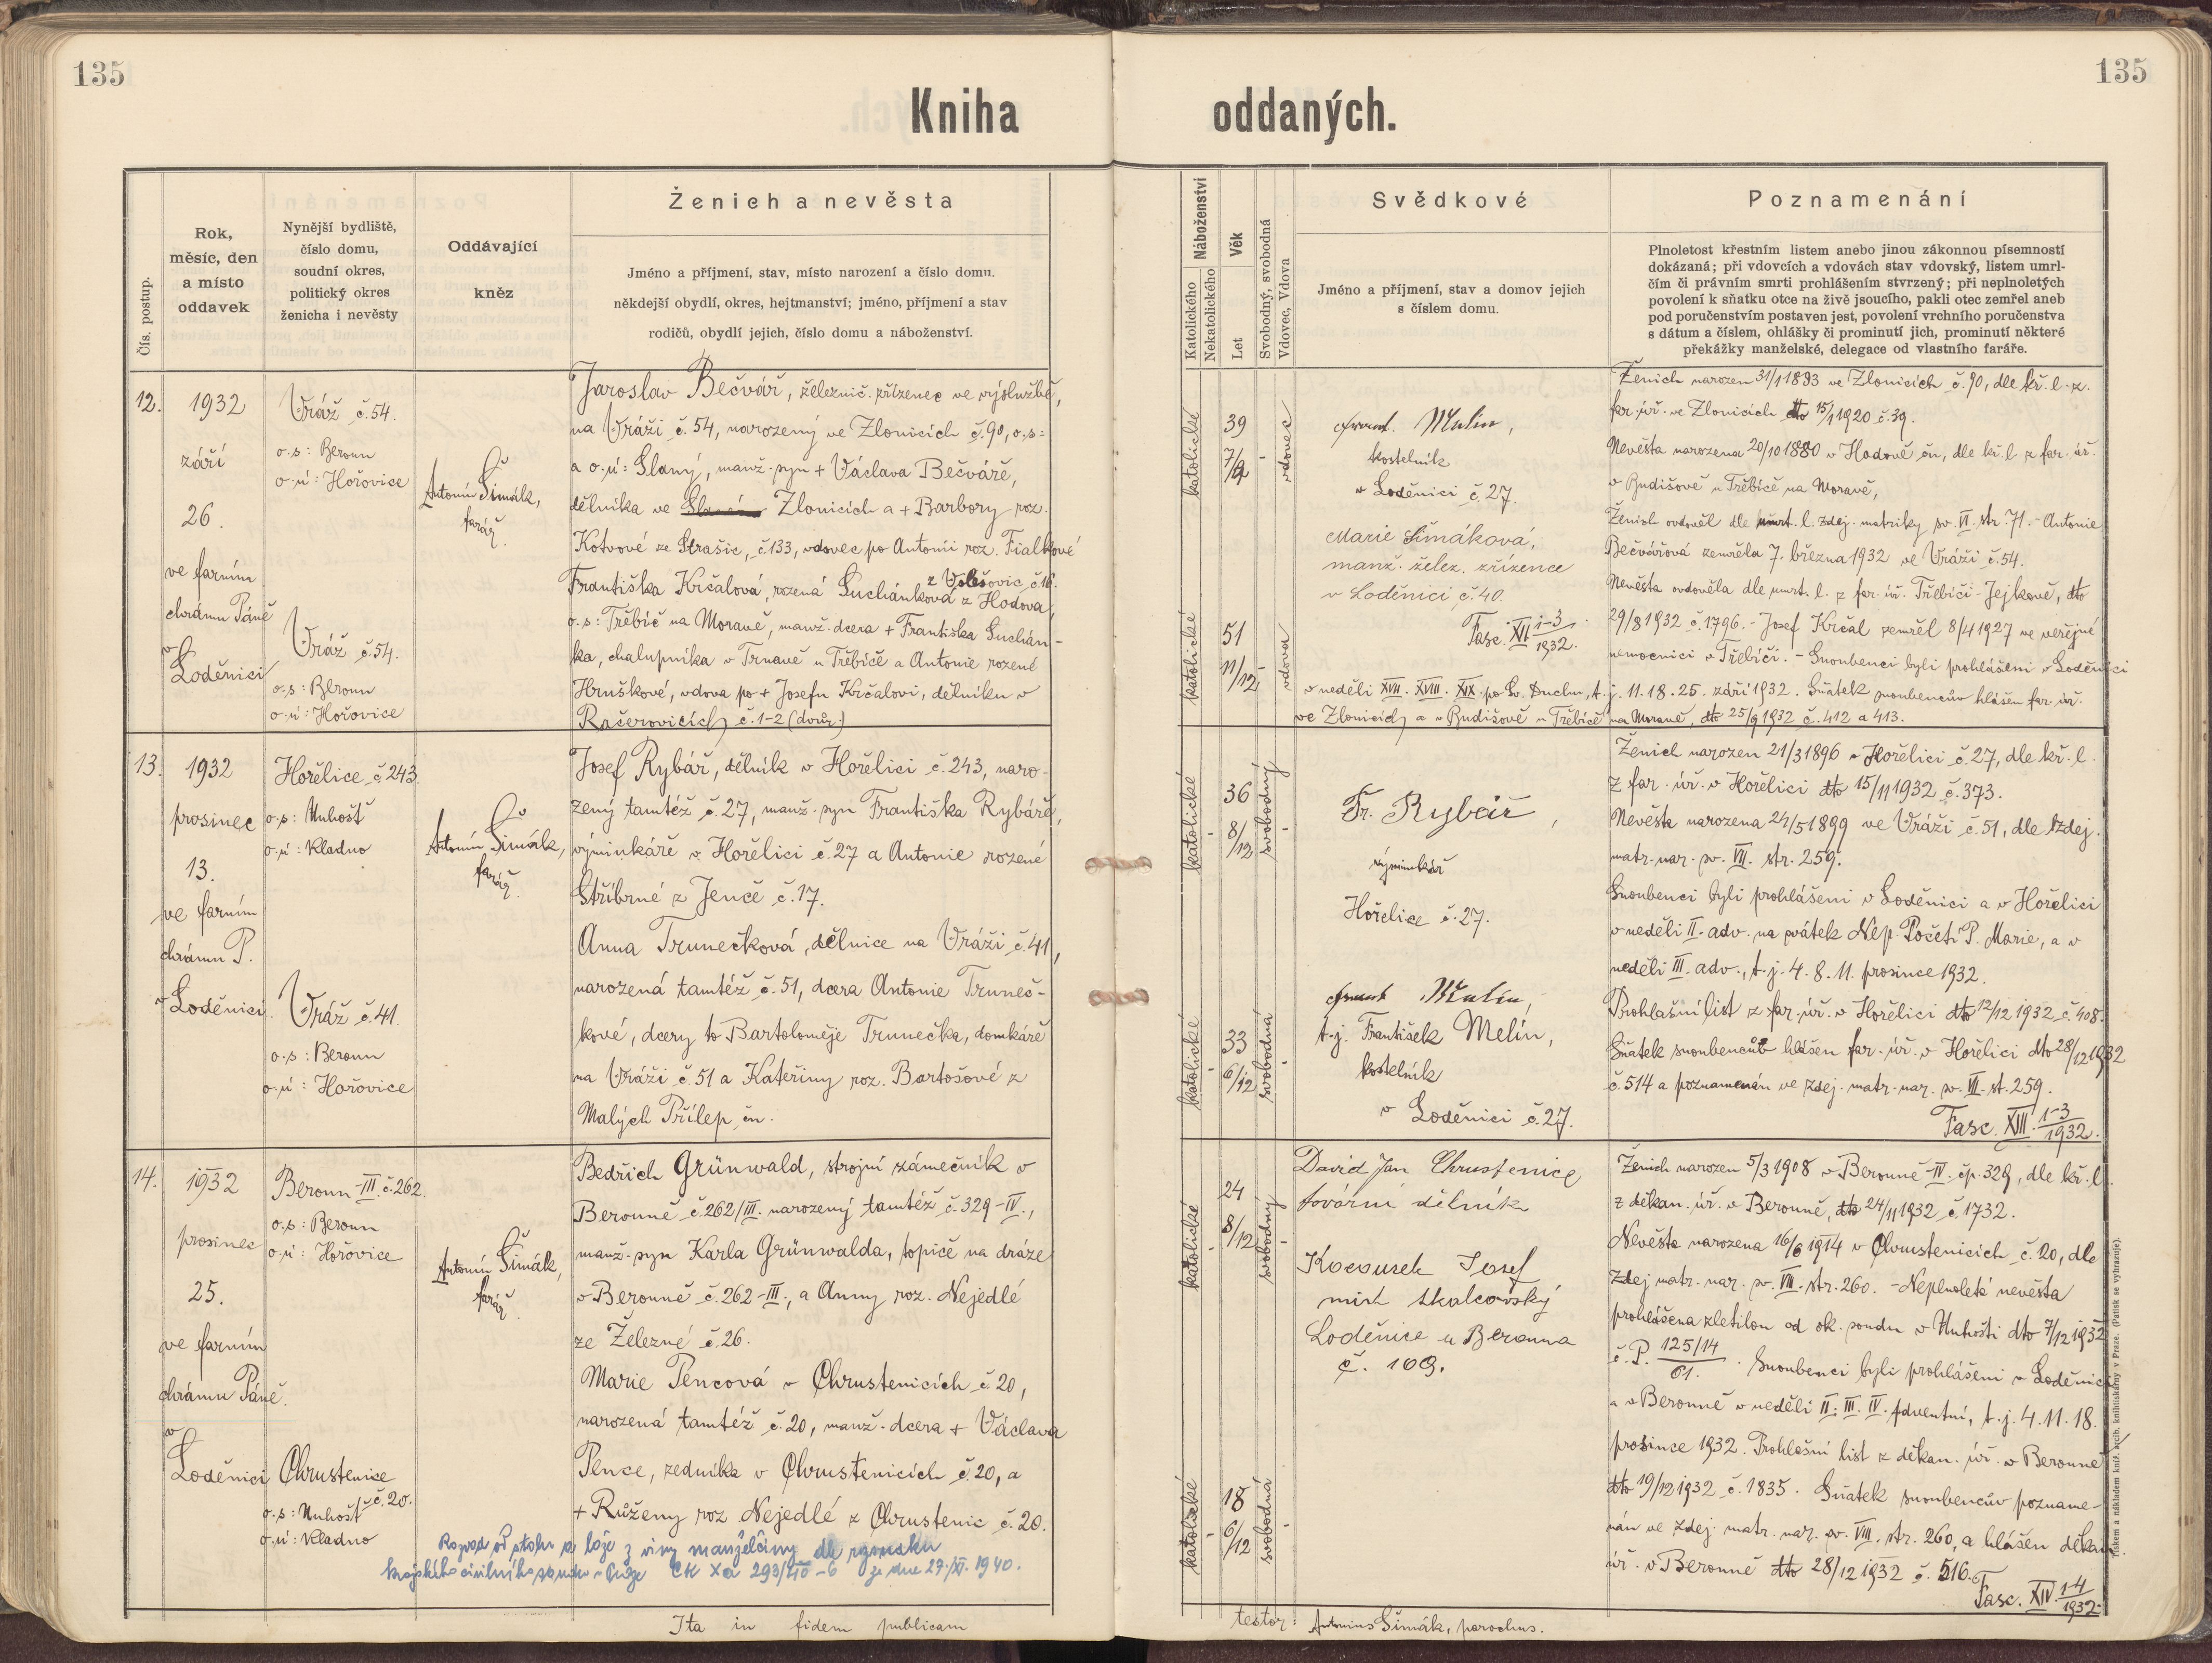 135
135
Kniha oddaných.
Čís. postup.
Rok,
měsíc, den
a místo
oddavek
Nynější bydliště,
číslo domu,
soudní okres,
politický okres
ženicha i nevěsty
Oddávající
kněz
Ženich a nevěsta
Jméno a příjmení, stav, místo narození a číslo domu.
někdejší obydlí, okres, hejtmanství; jméno, příjmení a stav
rodičů, obydlí jejich, číslo domu a náboženství.
Náboženství
Katolického
Nekatolického
Věk
Let
Svobodný, svobodná
Vdovec, Vdova
Svědkové
Jméno a příjmení, stav a domov jejich
s číslem domu.
Poznamenání
Plnoletost křestním listem anebo jinou zákonnou písemností
dokázaná; při vdovcích a vdovách stav vdovský, listem umrl-
čím či právním smrti prohlášením stvrzený; při neplnoletých
povolení k sňatku otce na živě jsoucího, pakli otec zemřel aneb
pod poručenstvím postaven jest, povolení vrchního poručenstva
s dátum a číslem, ohlášky či prominutí jich, prominutí některé
překážky manželské, delegace od vlastního faráře.
12.
1932
září
26.
ve farním
chrámu Páně
v
Loděnici
Vráž č. 54.
o. s: Beroun
o. ú: Hořovice
Vráž č. 54.
o. s: Beroun
o. ú: Hořovice
Antonín Šimák,
farář.
Jaroslav Bečvář, železnič. zřízenec ve výslužbě,
na Vráži č. 54, narozený ve Zlonicích č. 90, o. s:
a o. ú: Slaný, manž. syn + Václava Bečváře,
dělníka ve Zlonicích a + Barbory roz.
Kotvové ze Strašic, č. 133, vdovec po Antonii roz. Fialkové
z Valešovic, č. 16.
Františka Krčalová, rozená Suchánková z Hodova,
o. s: Třebíč na Moravě, manž. dcera + Františka Suchán-
ka, chalupníka v Trnavě u Třebíče a Antonie rozené
Hruškové, vdova po + Josefu Krčalovi, dělníku v
Račerovicích č. 1-2 (dvůr.)
katolické
39
7/12
vdovec
katolické
51
11/12
vdova
Frant. Melín,
kostelník
v Loděnici č. 27.
Marie Šimáková,
manž. želez. zřízence
v Loděnici č. 40.
Fasc. XII 1-3/1932.
Ženich narozen 31/1 1893 ve Zlonicích č. 90, dle kř. l. z.
far. úř. ve Zlonicích dto 15/1 1920 č. 39.
Nevěsta narozena 20/10 1880 v Hodově čn, dle kř. l. z far. úř.
v Budišově u Třebíče na Moravě,
Ženich ovdověl dle úmrt. l. zdej. matriky sv. VI. str. 71. - Antonie
Bečvářová zemřela 7. března 1932 ve Vráži č. 54.
Nevěsta ovdověla dle úmrt. l. z far. úř. Třebíči-Jejkově, dto
29/8 1932 č. 1796. - Josef Krčal zemřel 8/4 1927 ve veřejné
nemocnici v Třebíči. - Snoubenci byli prohlášeni v Loděnici
v neděli XVII. XVIII. XIX. po Sv. Duchu, t. j. 11. 18. 25. září 1932. Sňatek snoubencův hlášen far. úř.
ve Zlonicích a v Budišově u Třebíče na Moravě, dto 25/9 1932 č. 412 a 413.
13.
1932
prosinec
13.
ve farním
chrámu P.
v Loděnici
Hořelice č. 243.
o. s: Unhošť
o. ú: Kladno
Vráž č. 41.
o. s: Beroun
o. ú: Hořovice
Antonín Šimák,
farář.
Josef Rybář, dělník v Hořelici č. 243, naro-
zený tamtéž č. 27, manž. syn Františka Rybáře,
výminkáře v Hořelici č. 27 a Antonie rozené
Stříbrné z Jenče č. 17.
Anna Trunečková, dělnice na Vráži č. 41,
narozená tamtéž č. 51, dcera Antonie Truneč-
kové, dcery to Bartoloměje Trunečka, domkáře
na Vráži č. 51 a Kateřiny roz. Bartošové z
Malých Přílep čn.
katolické
36
8/12
svobodný
katolické
33
6/12
svobodná
Fr. Rybář,
výminkář
Hořelice č. 27.
Frant Melín,
t. j. František Melín,
kostelník
v Loděnici č. 27.
Ženich narozen 21/3 1896 v Hořelici č. 27, dle kř. l.
z far. úř. v Hořelici dto 15/11 1932 č. 373.
Nevěsta narozena 24/5 1899 ve Vráži č. 51, dle zdej.
matr. nar. sv. VII. str. 259.
Snoubenci byli prohlášeni v Loděnici a v Hořelici
v neděli II. adv. na svátek Nep. Početí P. Marie, a v
neděli III. adv., t. j. 4. 8. 11. prosince 1932.
Prohlašní list z far. úř. v Hořelici dto 12/12 1932 č. 408.
Sňatek snoubenců hlášen far. úř. v Hořelici dto 28/12 1932
č. 514 a poznamenán ve zdej. matr. nar. sv. VII. st. 259.
Fasc. XIII. 1-3/1932.
14.
1932
prosinec
25.
ve farním
chrámu Páně.
v
Loděnici
Beroun-III. č. 262.
o. s: Beroun
o. ú: Hořovice
Chrustenice
č. 20.
o. s: Unhošť
o. ú: Kladno
Antonín Šimák,
farář.
Bedřich Grünwald, strojní zámečník v
Berouně č. 262/III. narozený tamtéž č. 329-IV.,
manž. syn Karla Grünwalda, topiče na dráze
v Berouně č. 262-III., a Anny roz. Nejedlé
ze Železné č. 26.
Marie Pencová v Chrustenicích č. 20,
narozená tamtéž č. 20, manž. dcera + Václava
Pence, zedníka v Chrustenicích č. 20, a
+ Růženy roz Nejedlé z Chrustenic č. 20.
Rozvod od stolu a lože z viny manželčiny dle rozsudku
krajského civilního soudu v Praze Ck Xa 293/40-6 ze dne 29./XI. 1940.
katolické
24
8/12
svobodný
katolické
18
6/12
svobodná
David Jan Chrustenice
tovární dělník
Kocourek Josef
mistr skalcovský
Loděnice u Berouna
č. 109.
Ženich narozen 5/3 1908 v Berouně-IV. čp. 329, dle kř. l.
z děkan. úř. v Berouně, dto 24/11 1932 č. 1732.
Nevěsta narozena 16/6 1914 v Chrustenicích č. 20, dle
zdej matr. nar. sv. VIII. str. 260. - Neplnoletá nevěsta
prohlášena zletilou od ok. soudu v Unhošti dto 7/12 1932
č. P. 125/14/61. Snoubenci byli prohlášeni v Loděnici
a v Berouně v neděli II. III. IV. Adventní, t. j. 4. 11. 18.
prosince 1932. Prohlašní list z děkan. úř. v Berouně
dto 19/12 1932 č. 1835. Sňatek snoubencův pozname-
nán ve zdej. matr. nar. sv. VIII. str. 260, a hlášen děkan.
úř. v Berouně dto 28/12 1932 č. 516.
Fasc. XIV. 1-4/1932.
Ita in fidem publicam
testor: Antonius Šimák, parochus.